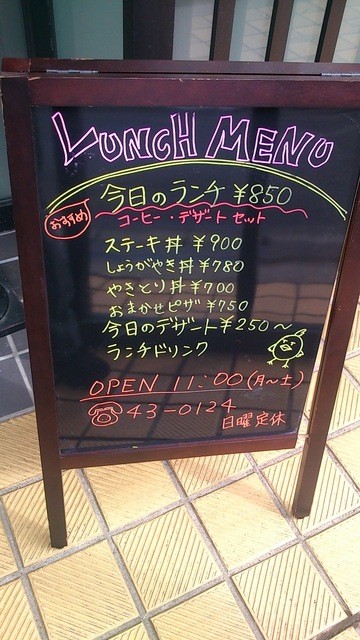 LUNCH MENU
今日のランチ ¥850
おすすめ
コーヒー・デザートセット
ステーキ丼 ¥900
しょうがやき丼 ¥780
やきとり丼 ¥700
おまかせピザ ¥750
今日のデザート ¥250〜
ランチドリンク
OPEN 11:00(月〜土)
43-0124
日曜定休